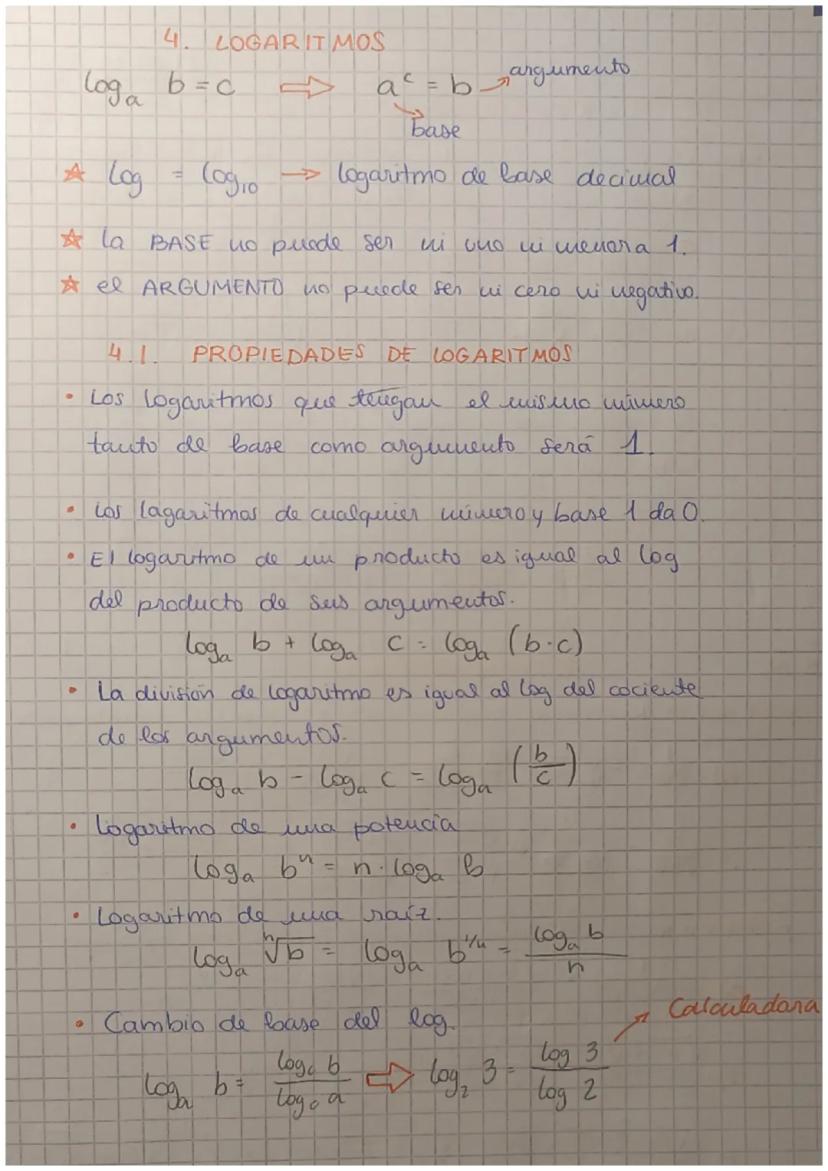 4. LOGARITMOS
logₐ b = c ⇒ aᶜ = b → argumento
base
☆ log = log₁₀ → logaritmo de base decimal
☆ la BASE no puede ser ni uno ni menor a 1.
☆ el ARGUMENTO no puede ser ni cero ni negativo.
4.1. PROPIEDADES DE LOGARITMOS
• Los logaritmos que tengan el mismo número
tanto de base como argumento será 1.
• Los lagaritmos de cualquier número y base 1 da 0.
• El logaritmo de un producto es igual al log
del producto de sus argumentos.
logₐ b + logₐ c = logₐ (b·c)
• La división de logaritmo es igual al log del cociente
de los argumentos.
logₐ b - logₐ c = logₐ (b/c)
• Logaritmo de una potencia
logₐ bⁿ = n · logₐ b
• Logaritmo de una raíz.
logₐ ⁿ√b = logₐ b^(1/n) = logₐ b / n
• Cambio de base del log.
Calculadora
logₐ b = log_c b / log_c a ⇒ log₂ 3 = log 3 / log 2